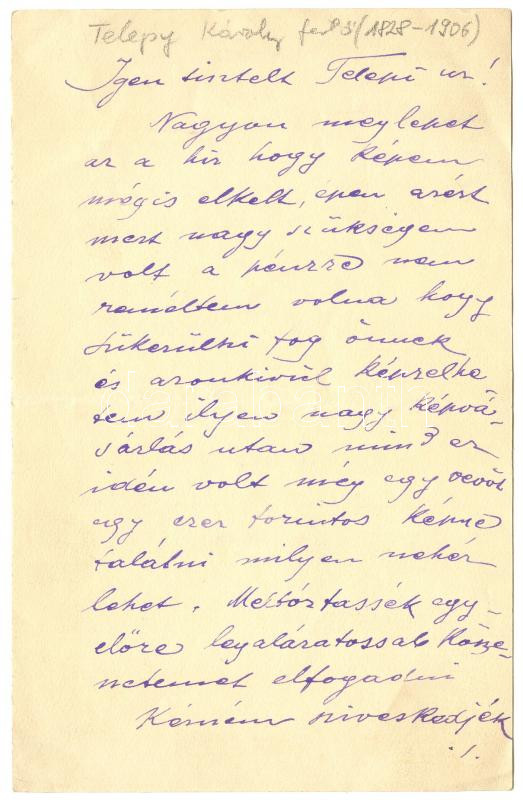 Telepy Károly festő (1828-1906)
Igen tisztelt Telepi ur!
Nagyon meglepet
az a hir hogy képem
mégis elkelt, épen azért
mert nagy szükségem
volt a pénzre nem
reméltem volna hogy
sikerülni fog önnek
és azonkivül képzelhe
tem ilyen nagy képvá-
sárlás utan mind ez
idén volt még egy vevőt
egy ezer forintos képne
találni milyen nehéz
lehet. Méltóztassék egy-
előre legalázatossab Kösze-
netemet elfogadni
Kérném sziveskedjék
./.